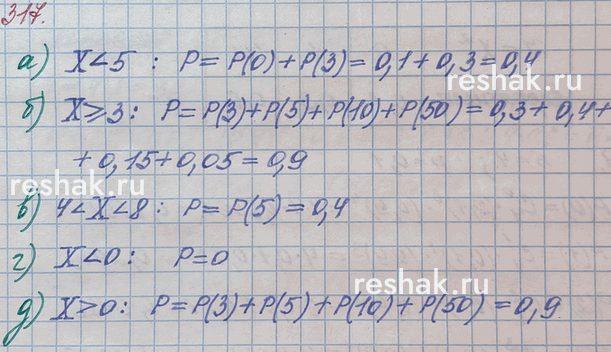 317.
а) X<5 : P= P(0)+P(3)=0,1+0,3=0,4
reshak.ru
б) X⩾3: P=P(3)+P(5)+P(10)+P(50)=0,3+0,4+
+0,15+0,05=0,9
reshak.ru
в) 4<X<8: P=P(5)=0,4
г) X<0: P=0
reshak.ru
д) X>0: P=P(3)+P(5)+P(10)+P(50)=0,9